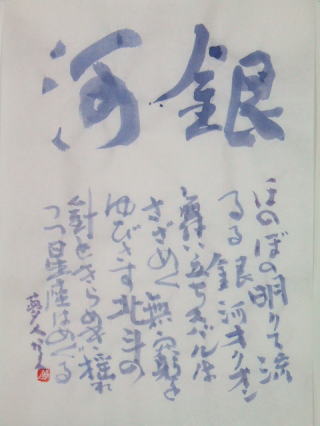 銀河
ほのぼの明りて流
るる銀河オリオン
舞い立ちスバルは
さざめく無窮を
ゆびさす北斗の
針ときらめき揺れ
つつ星座はめぐる
夢人